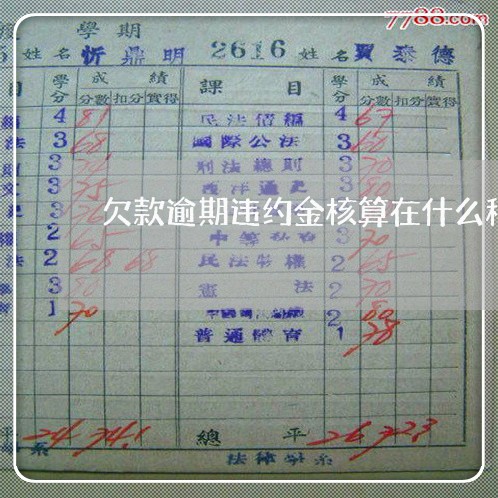 7788.com
學期
姓名 忻鼎明 2616 姓名 賈泰德
目 學分 成績 課目 學分 成績
分數 扣分 實得 分數 扣分 實得
4 81 民法債編 4 67
法 3 68 國際公法 3 60
3 刑法總則 3 70
3 75 西洋通史 3 80
欠款逾期违约金核算在什么科
2 65 3 70
法 2 68 68 民法物權 2 65
3 80 憲法 2 70
1 70 2 80
普通體育 1 78
平 24 74.1 總平 26 72.3
系 法律學系